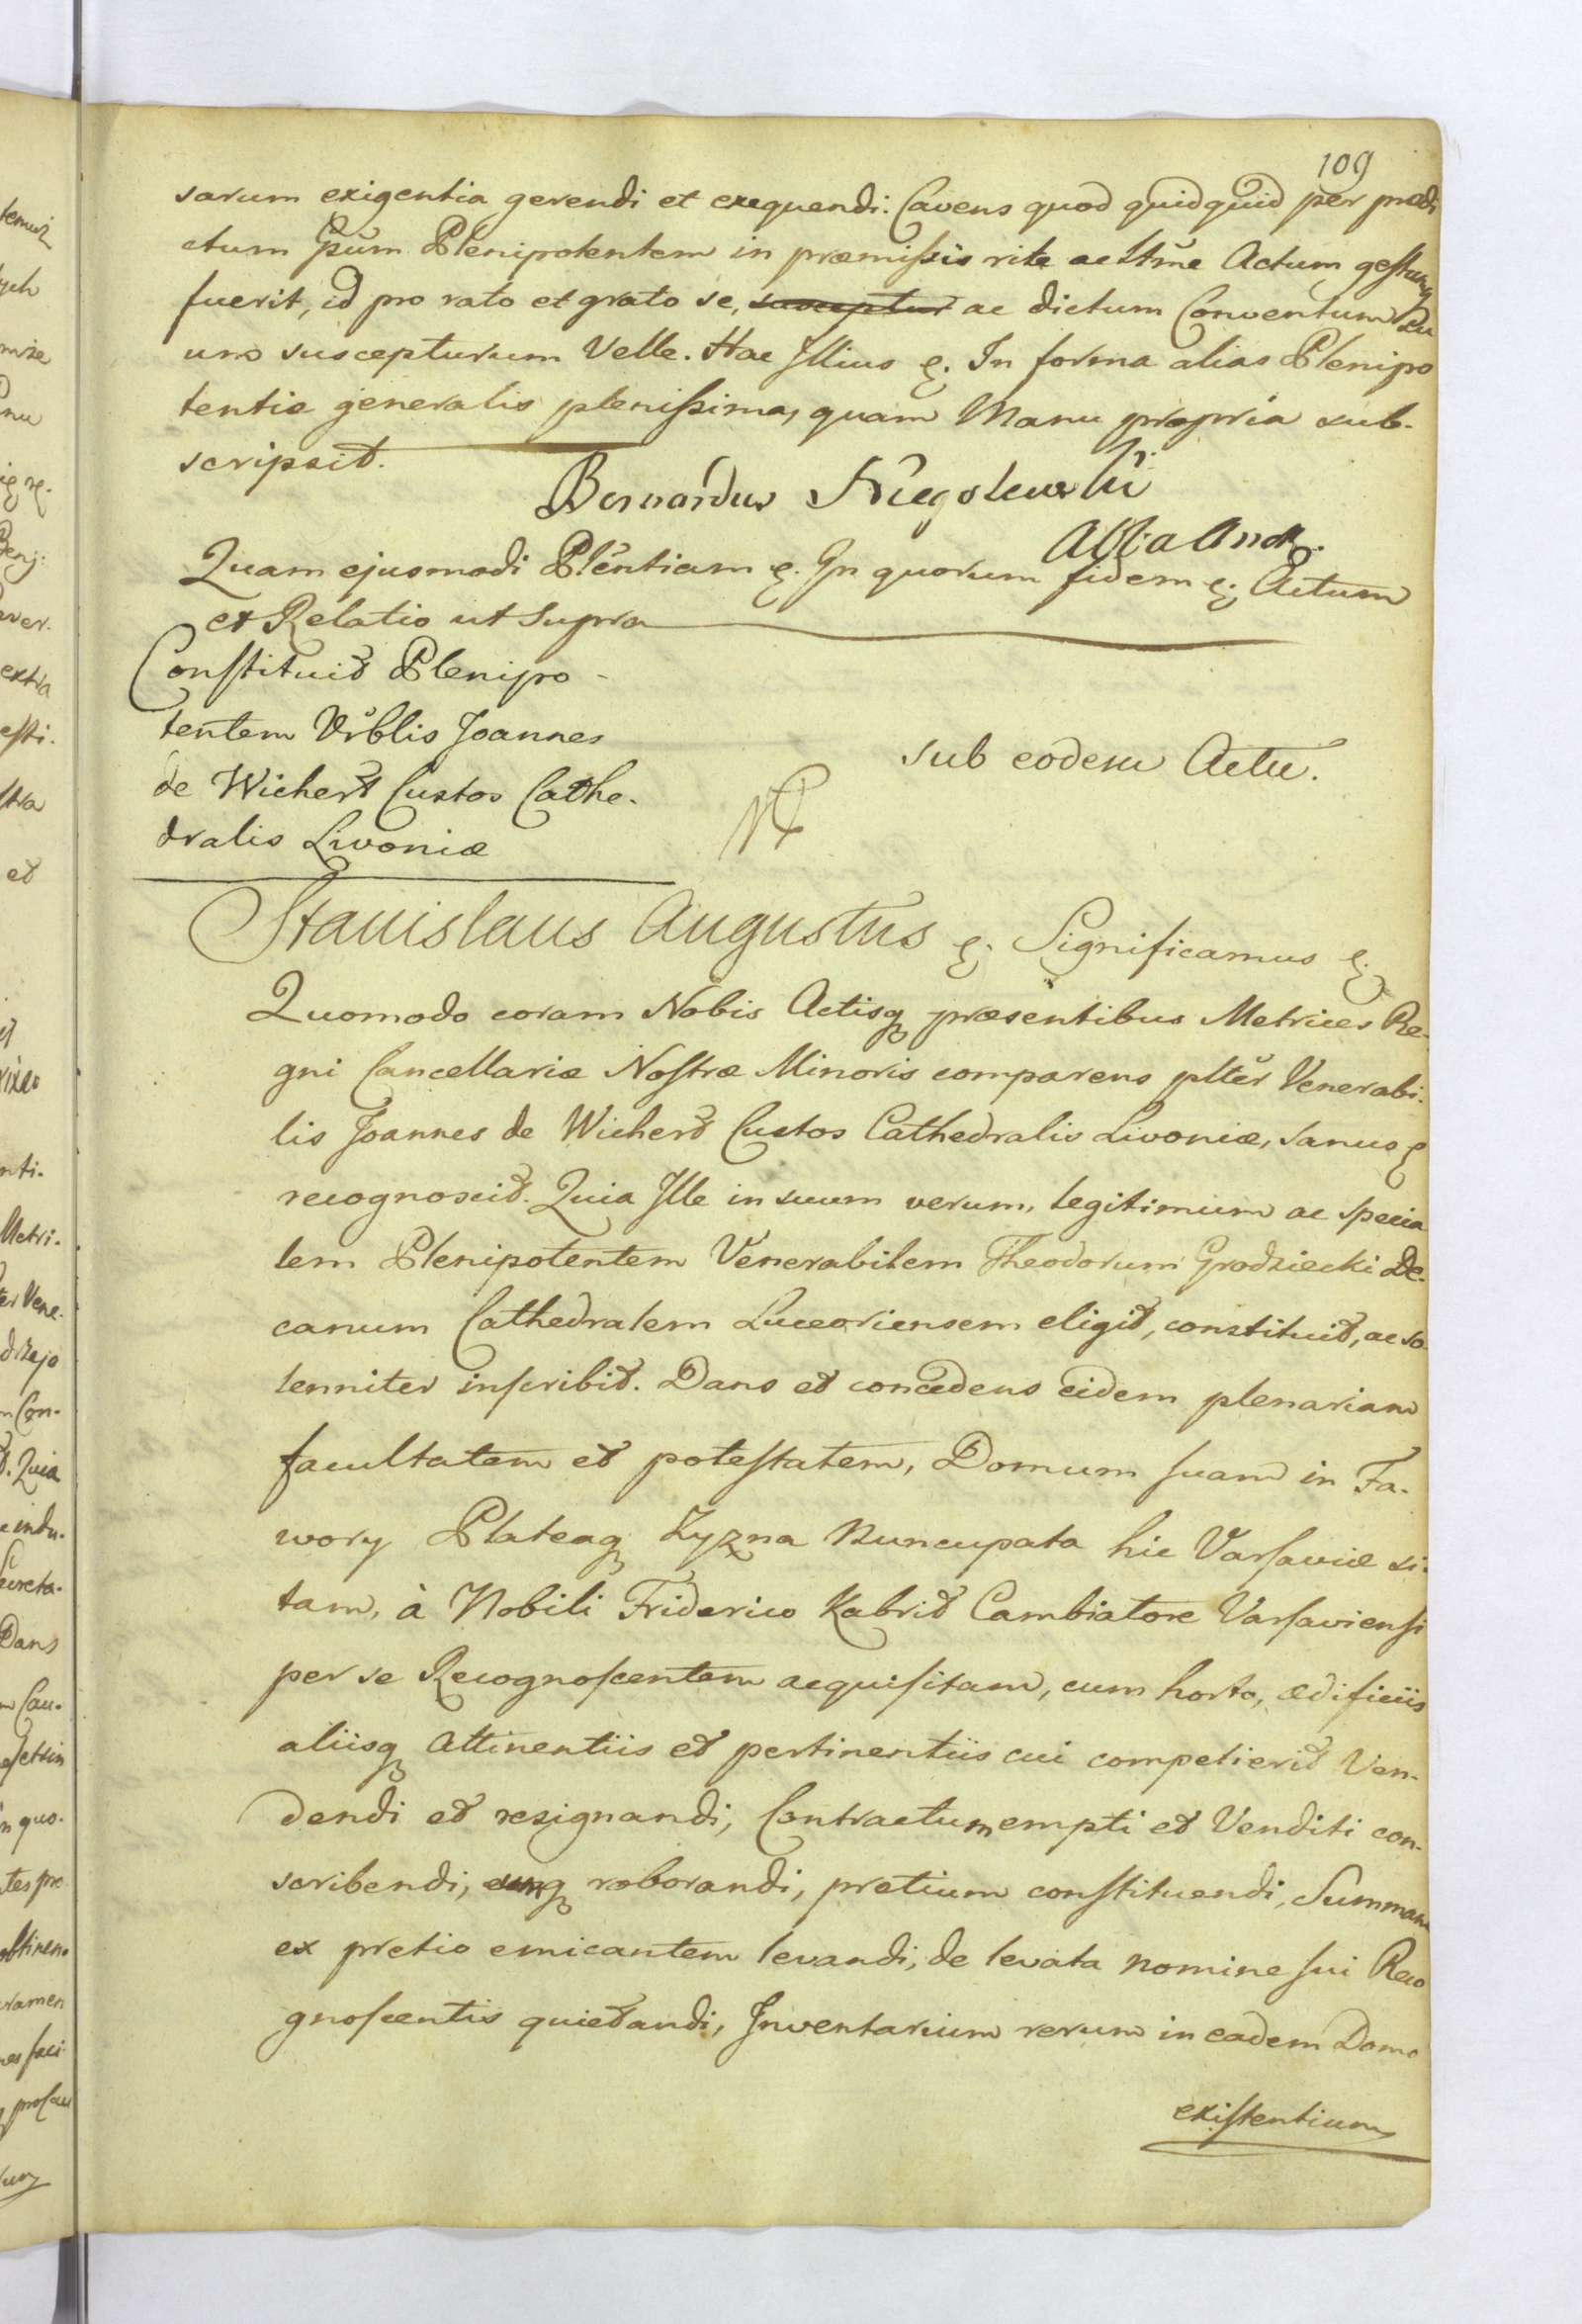 109
sarum exigentia gerendi et exequendi. Cavens quod quidquid per prædi
ctum Ipsum Plenipotentem in præmissis rite ac lttme Actum gestumq
fuerit, id pro rato et grato se, susceptur ac dictum Conventum su
um suscepturum Velle. Hac Illius &. In forma alias Plenipo
tentiæ generalis plenissima, quam Manu propria sub-
scripsit.
Bernardus Niegolewski
Abb: a Andr.
Quam ejusmodi Plentiam &. In quorum fidem &. Actum
et Relatio ut supra
Constituit Plenipo-
tentem Vrblis Joannes
de Wichert Custos Cathe-
dralis Livoniæ
sub eodem Actu.
Stanislaus Augustus &. Significamus &.
Quomodo coram Nobis Actisq præsentibus Metrices Re-
gni Cancellariæ Nostræ Minoris comparens plter Venerabi-
lis Joannes de Wichert Custos Cathedralis Livoniæ, sanus &
recognoscit. Quia Ille in suum verum, legitimum ac specia
lem Plenipotentem Venerabilem Theodorum Grodziecki De-
canum Cathedralem Luceoriensem eligit, constituit, ac so
lenniter inscribit. Dans et concedens eidem plenariam
facultatem et potestatem, Domum suam in Fa-
wory Plateaq Żyzna Nuncupata hic Varsaviæ si-
tam, à Nobili Friderico Kabrit Cambiatore Varsaviensi
per se Recognoscentem acquisitam, cum horto, ædificiis
aliisq Attinentiis et pertinentiis cui competierit Ven-
dendi et resignandi, Contractum empti et Venditi con-
scribendi, eumq roborandi, pretium constituendi, Summam
ex pretio emicantem levandi, de levata nomine sui Reco
gnoscentis quietandi, Inventarium rerum in eadem Domo
existentium